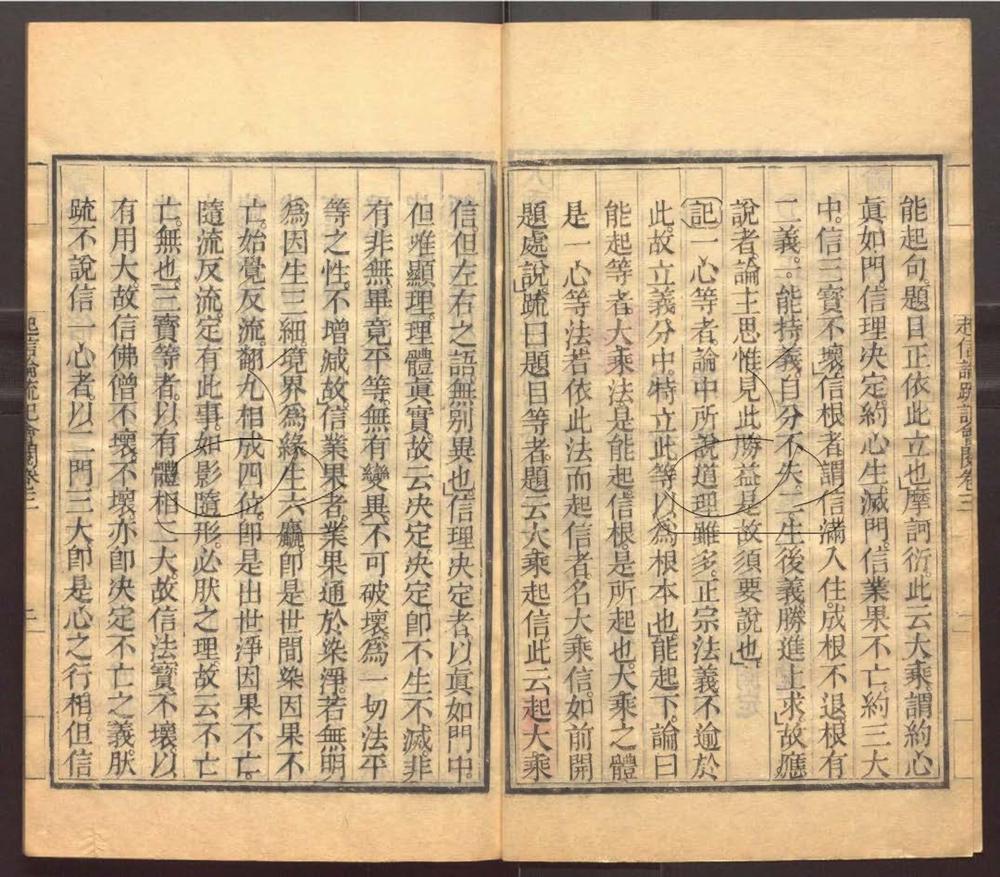 能起句。題目正依此立也。」摩訶衍。此云大乘。謂約心
眞如門。信理決定。約心生滅門。信業果不亡。約三大
中。信三寶不壞。信根者。謂信滿入住。成根不退。根有
二義。一。能持義。自分不失。二。生後義。勝進上求。」故應
說者。論主思惟。見此勝益。是故須要說也。」
記一心等者。論中所說道理雖多。正宗法義。不逾於
此。故立義分中。特立此等。以爲根本也。能起下。論曰
能起等者。大乘法是能起。信根。是所起也。大乘之體
是一心等法。若依此法而起信者。名大乘信。如前開
題處說。」疏曰題目等者。題云大乘起信。此云起大乘
信。但左右之語。無別異也。」信理決定者。以眞如門中。
但唯顯理。理體眞實。故云決定。決定卽不生不滅。非
有非無。畢竟平等。無有變異。不可破壞。爲一切法平
等之性。不增減故。」信業果者。業果通於染淨。若無明
爲因生三細。境界爲緣生六麤。卽是世間染因果不
亡。始覺反流。翻九相成四位。卽是出世淨因果不亡。
隨流反流。定有此事。如影隨形。必肰之理。故云不亡
亡。無也。」三寶等者。以有體相二大。故信法寶不壞。以
有用大。故信佛僧不壞。不壞亦卽決定不亡之義。肰
疏不說信一心者。以二門三大。卽是心之行相。但信
起信論疏記會閱卷三
二